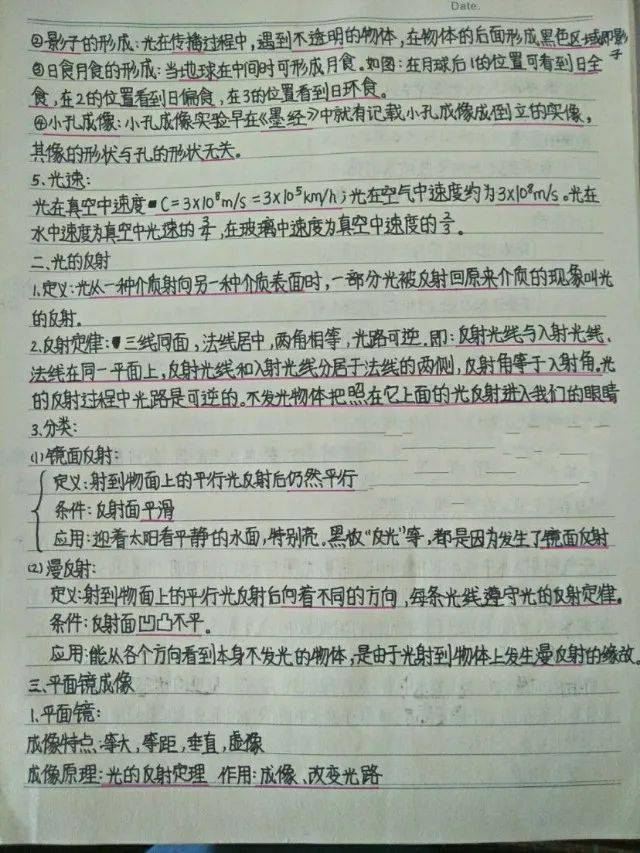 Date.
②影子的形成：光在传播过程中，遇到不透明的物体，在物体的后面形成黑色区域即影子
③日食月食的形成：当地球在中间时可形成月食。如图：在月球后1的位置可看到日全
食，在2的位置看到日偏食，在3的位置看到日环食。
④小孔成像：小孔成像实验早在《墨经》中就有记载小孔成像成倒立的实像，
其像的形状与孔的形状无关。
5.光速：
光在真空中速度C=3×10⁸m/s=3×10⁵km/h；光在空气中速度约为3×10⁸m/s。光在
水中速度为真空中光速的3/4，在玻璃中速度为真空中速度的2/3。
二.光的反射
1.定义：光从一种介质射向另一种介质表面时，一部分光被反射回原来介质的现象叫光
的反射。
2.反射定律：三线同面，法线居中，两角相等，光路可逆。即：反射光线与入射光线、
法线在同一平面上，反射光线和入射光线分居于法线的两侧，反射角等于入射角。光
的反射过程中光路是可逆的。不发光物体把照在它上面的光反射进入我们的眼睛
3.分类：
(1)镜面反射：
定义：射到物面上的平行光反射后仍然平行
条件：反射面平滑
应用：迎着太阳看平静的水面，特别亮。黑板“反光”等，都是因为发生了镜面反射
(2)漫反射：
定义：射到物面上的平行光反射后向着不同的方向，每条光线遵守光的反射定律。
条件：反射面凹凸不平。
应用：能从各个方向看到本身不发光的物体，是由于光射到物体上发生漫反射的缘故。
三.平面镜成像
1.平面镜：
成像特点：等大，等距，垂直，虚像
成像原理：光的反射定理 作用：成像、改变光路